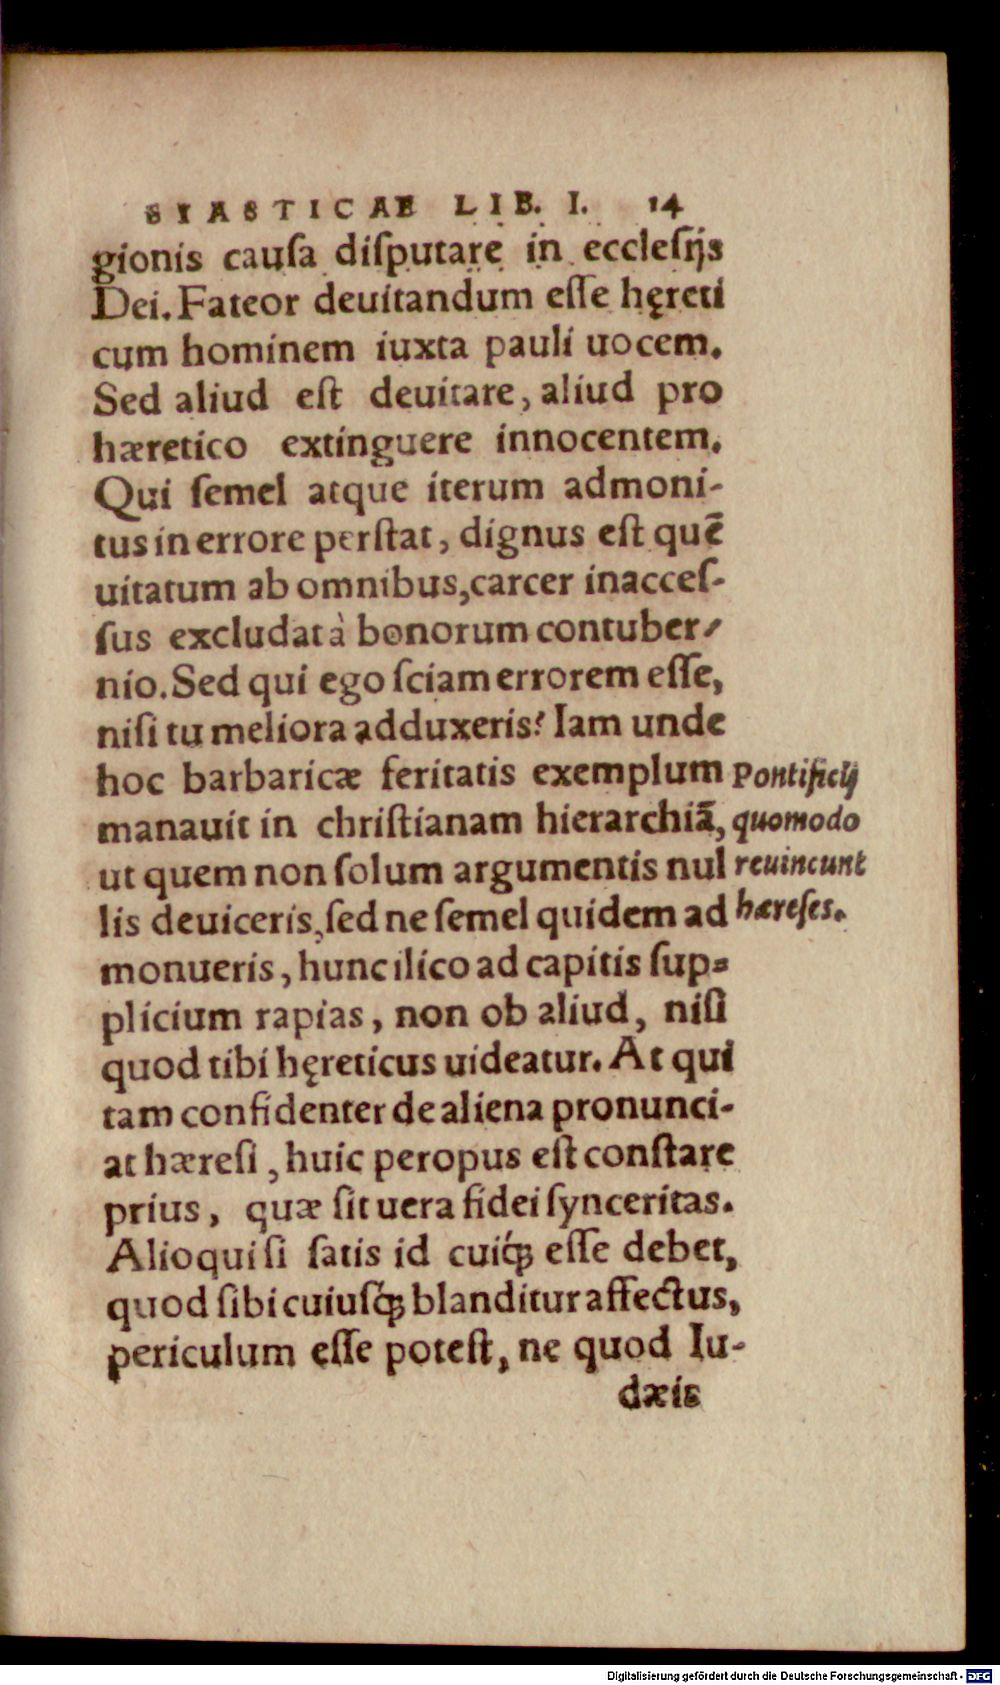 SIASTICAE LIB. I. 14
gionis cauſa diſputare in eccleſijs
Dei. Fateor deuitandum eſſe hęreti
cum hominem iuxta pauli uocem.
Sed aliud eſt deuitare, aliud pro
hæretico extinguere innocentem.
Qui ſemel atque iterum admoni-
tus in errore perſtat, dignus eſt quē
uitatum ab omnibus, carcer inacceſ-
ſus excludat à bonorum contuber-
nio. Sed qui ego ſciam errorem eſſe,
niſi tu meliora adduxeris? Iam unde
hoc barbaricæ feritatis exemplum
manauit in chriſtianam hierarchiā,
ut quem non ſolum argumentis nul
lis deuiceris, ſed ne ſemel quidem ad
monueris, hunc ilico ad capitis ſup-
plicium rapias, non ob aliud, niſi
quod tibi hęreticus uideatur. At qui
tam confidenter de aliena pronunci-
at hæreſi, huic peropus eſt conſtare
prius, quæ ſit uera fidei ſynceritas.
Alioqui ſi ſatis id cuiq́ꝫ eſſe debet,
quod ſibi cuiuſq́ꝫ blanditur affectus,
periculum eſſe poteſt, ne quod Iu-
dæis
Pontificij
quomodo
reuincunt
hæreſes.
Digitalisierung gefördert durch die Deutsche Forschungsgemeinschaft - DFG